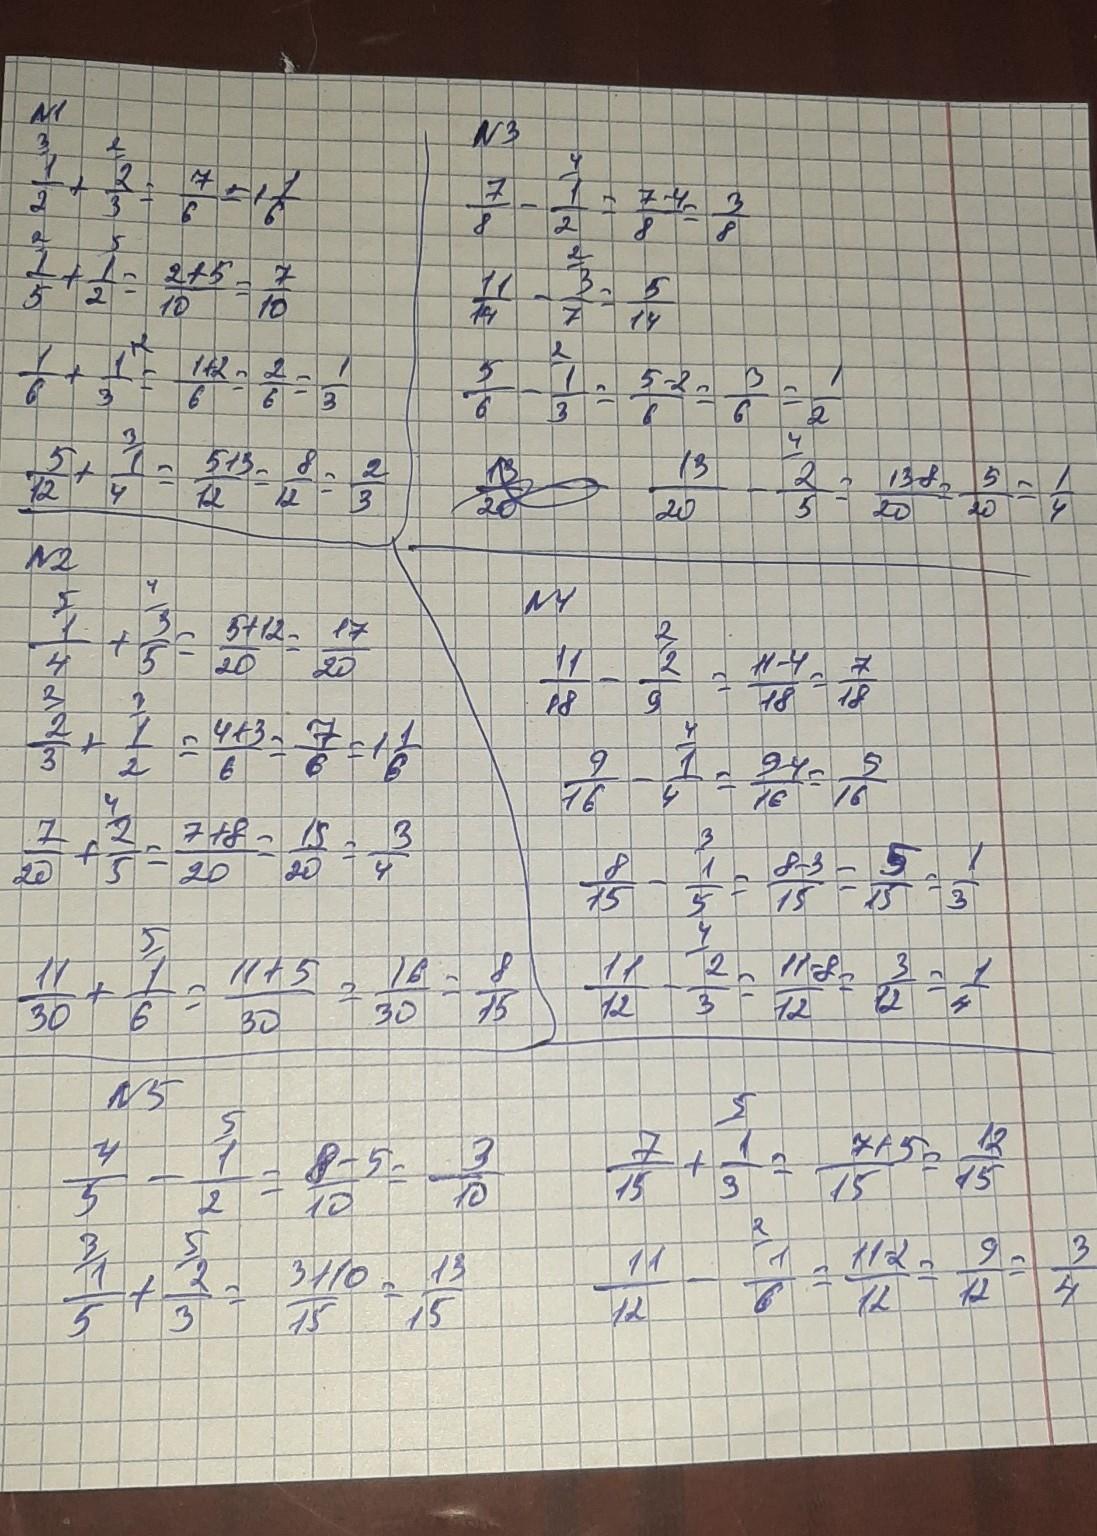 N1
3 2
1/2 + 2/3 = 7/6 = 1 1/6
2 5
1/5 + 1/2 = 2+5/10 = 7/10
2
1/6 + 1/3 = 1+2/6 = 2/6 = 1/3
3
5/12 + 1/4 = 5+3/12 = 8/12 = 2/3
N2
5 4
1/4 + 3/5 = 5+12/20 = 17/20
2 3
2/3 + 1/2 = 4+3/6 = 7/6 = 1 1/6
4
7/20 + 2/5 = 7+8/20 = 15/20 = 3/4
5
11/30 + 1/6 = 11+5/30 = 16/30 = 8/15
N3
4
7/8 - 1/2 = 7-4/8 = 3/8
2
11/14 - 3/7 = 5/14
2
5/6 - 1/3 = 5-2/6 = 3/6 = 1/2
4
13/20 13/20 - 2/5 = 13-8/20 = 5/20 = 1/4
N4
2
11/18 - 2/9 = 11-4/18 = 7/18
4
9/16 - 1/4 = 9-4/16 = 5/16
3
8/15 - 1/5 = 8-3/15 = 5/15 = 1/3
4
11/12 - 2/3 = 11-8/12 = 3/12 = 1/4
N5
5
4/5 - 1/2 = 8-5/10 = 3/10
3 5
1/5 + 2/3 = 3+10/15 = 13/15
5
7/15 + 1/3 = 7+5/15 = 12/15
2
11/12 - 1/6 = 11-2/12 = 9/12 = 3/4